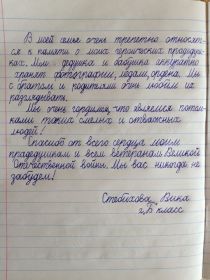 В моей семье очень трепетно относят-
ся к памяти о моих героических прадедуш-
ках. Мои дедушка и бабушка аккуратно
хранят фотографии, медали, ордена. Мы
с братом и родителями очень любим их
разглядывать.
Мы очень гордимся, что являемся потом-
ками таких смелых и отважных
людей!
Спасибо от всего сердца моим
прадедушкам и всем ветеранам Великой
Отечественной войны. Мы вас никогда не
забудем!
Стебихова Вика
2,Б класс